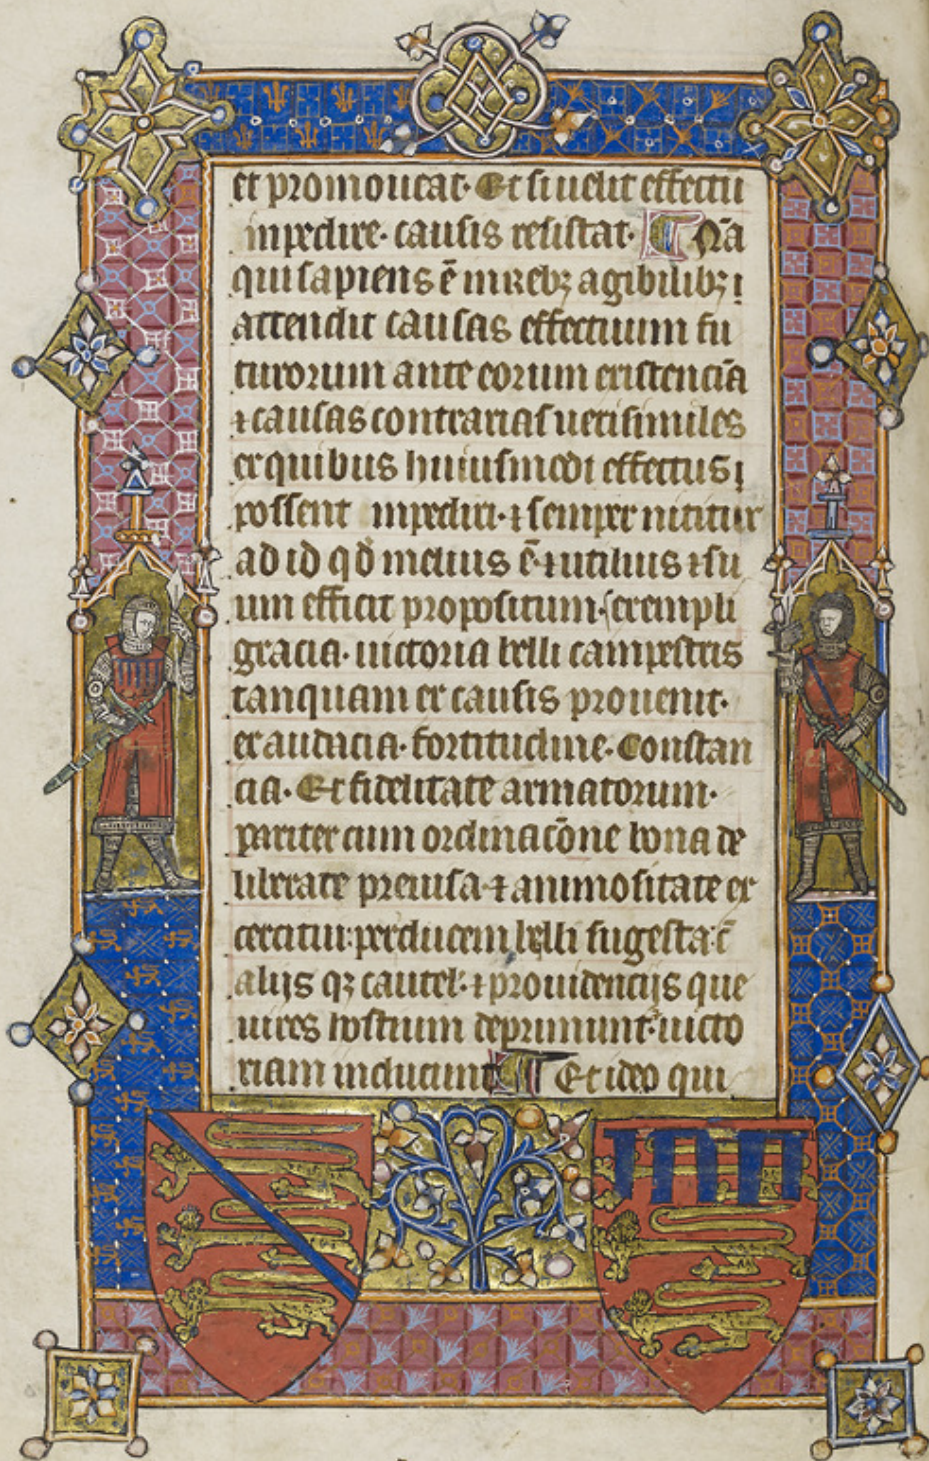 et promoueat. Et si uelit effectū
inpedire. causis resistat. Nā
qui sapiens ē in reb; agibilib; i
attendit causas effectuum fu
turorum ante eorum existenciā
⁊ causas contrarias uerisimiles
ex quibus huiusmodi effectus i
possent inpediri. ⁊ semper nititur
ad id qđ melius ē ⁊ utilius ⁊ su
um efficit propositum. exempli
gracia. uictoria belli campestris
tanquam ex causis prouenit.
ex audacia. fortitudine. Constan
cia. Et fidelitate armatorum.
pariter cum ordinacōne bona de
liberate preuisa ⁊ animositate ex
ercitui: per ducem belli sugesta: c̄
alijs qꝫ cautel. ⁊ prouidencijs que
uires hostium deprimunt. uicto
riam inducunt Et ideo qui